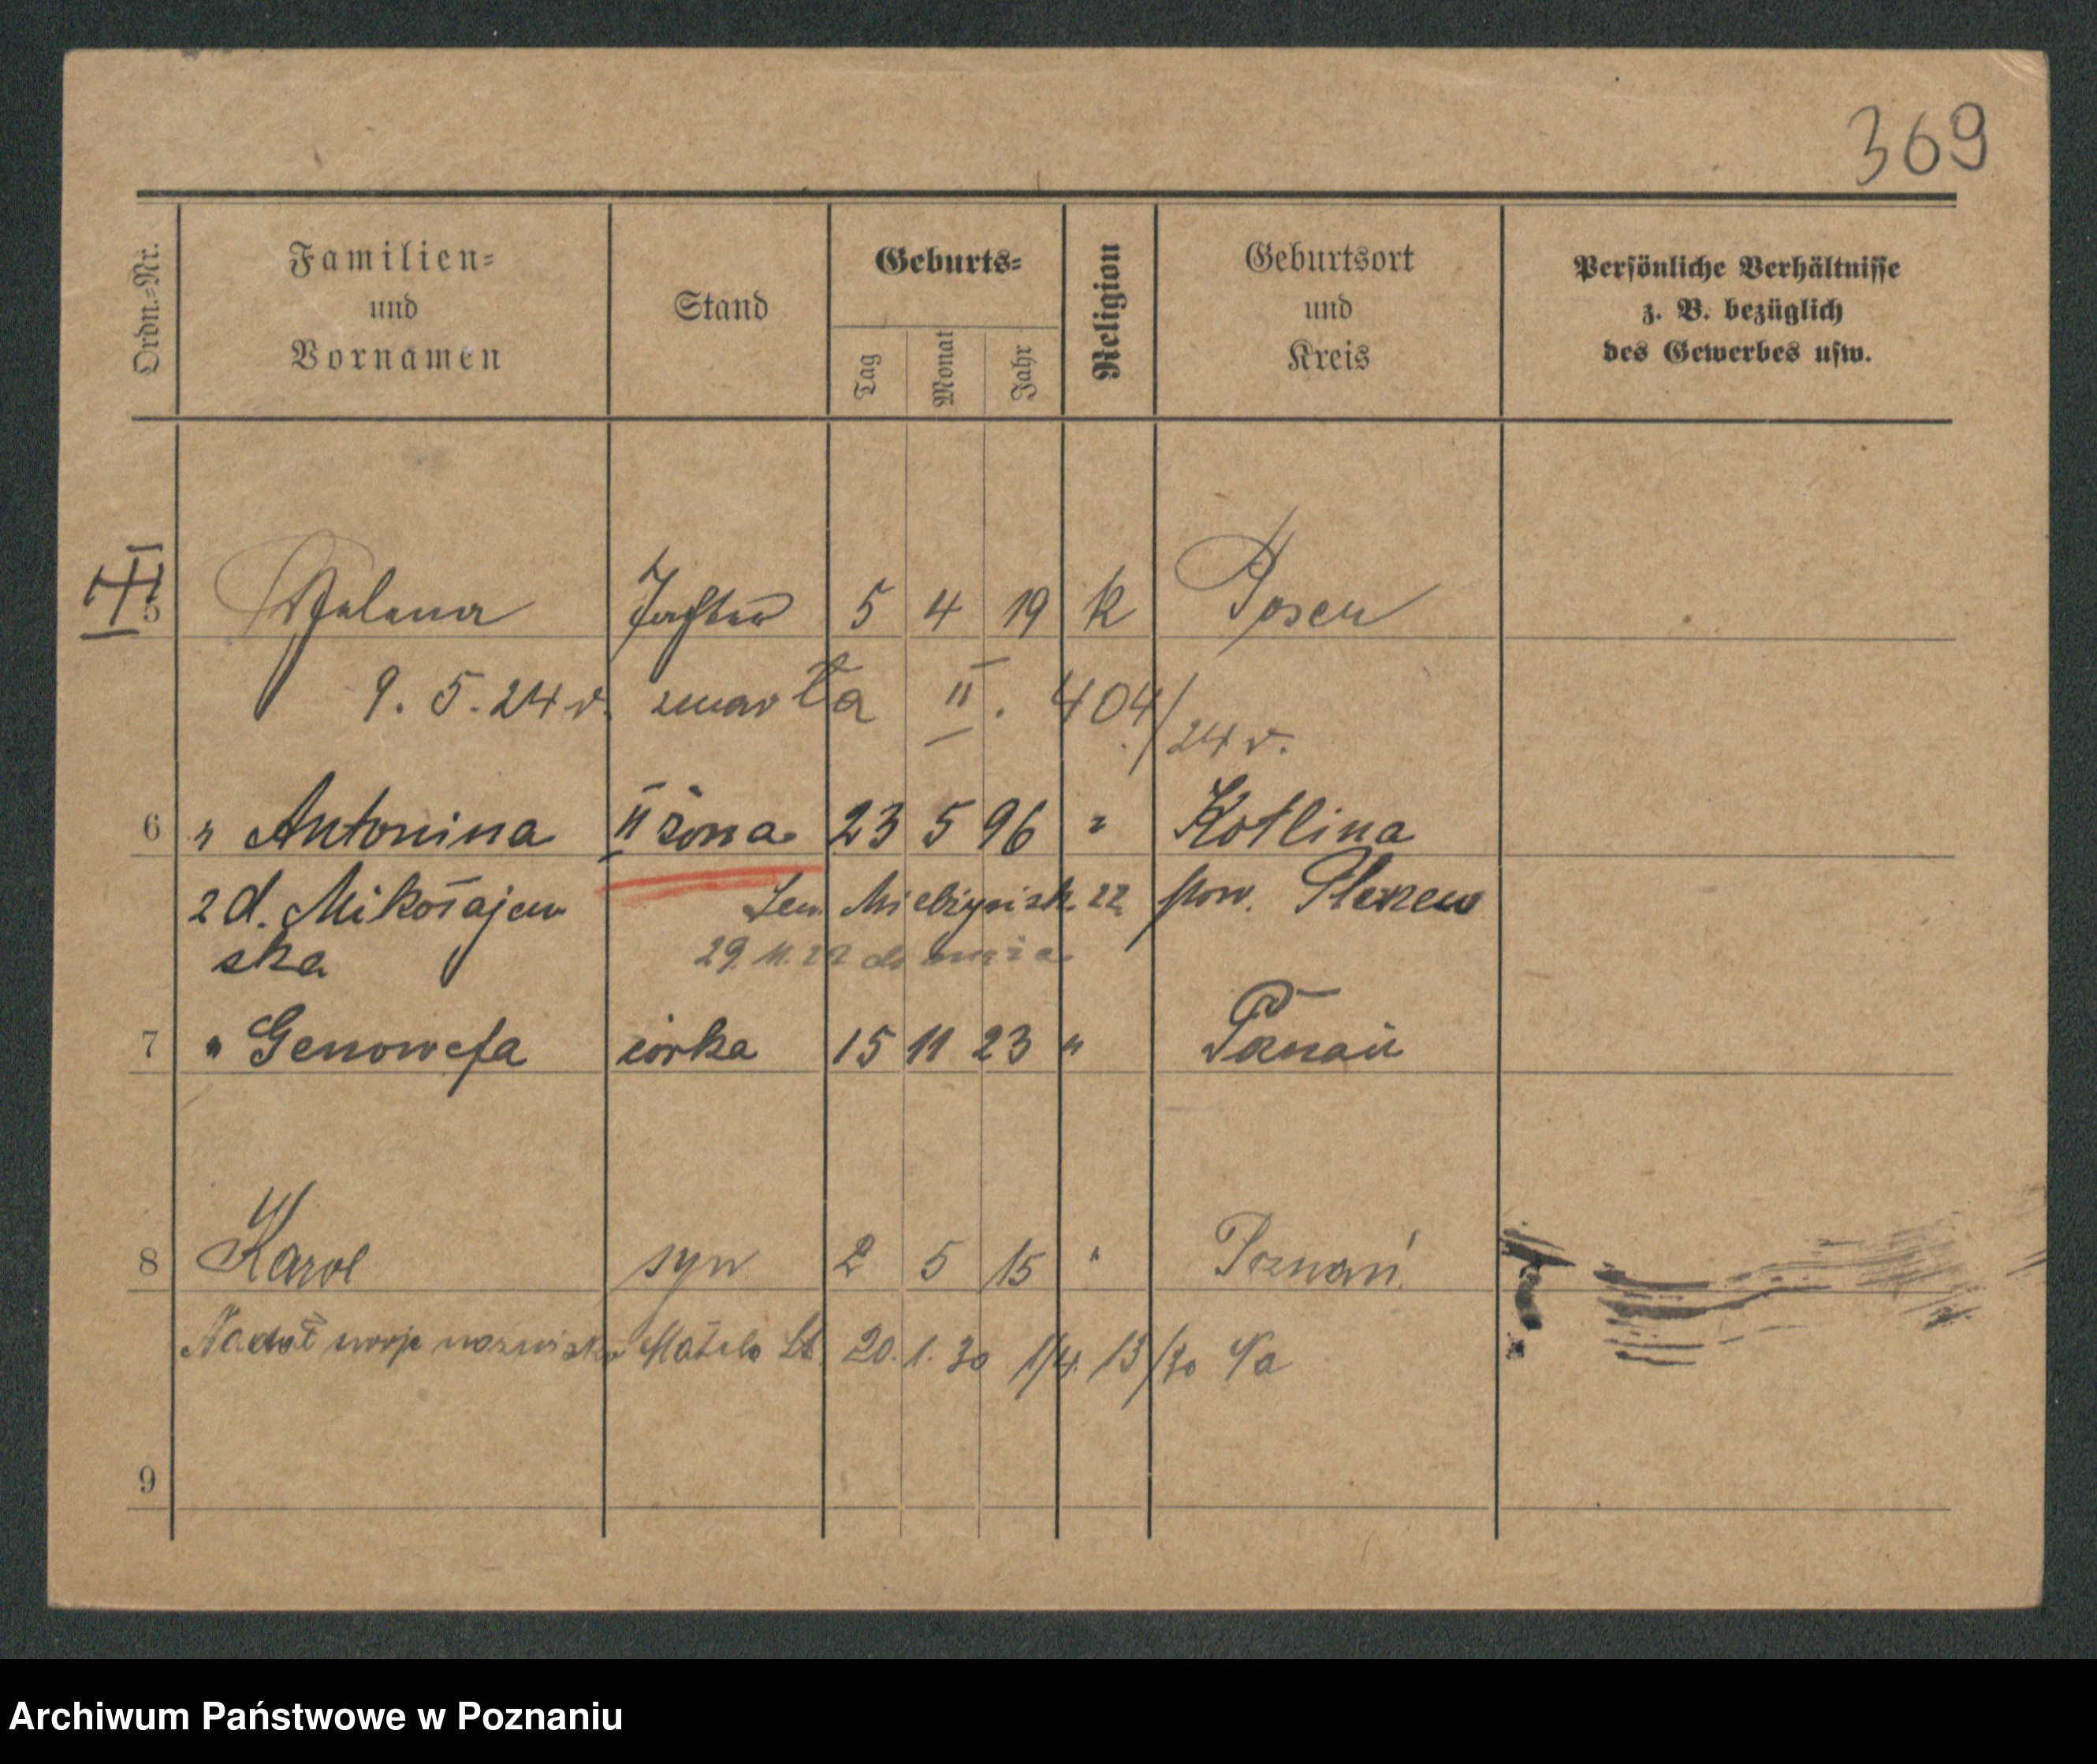 369
Ordn.=Nr. Familien= und Vornamen Stand Geburts= Tag Monat Jahr Religion Geburtsort und Kreis Persönliche Verhältnisse z. B. bezüglich des Gewerbes usw.
5 Tochter 5 4 19 k Posen
9. 5. 24 r. zmarła II. 404/24 r.
6 " Antonina II żona 23 5 96 " Kotlina
2 d. Mikołajewska 22 pow. Pleszew
29. 11. 22
7 " Genowefa córka 15 11 23 " Poznań
8 Karol syn 2 5 15 " Poznań
Nadał swoje nazwisko 20. 1. 30 1/4. 13/30
9
Archiwum Państwowe w Poznaniu